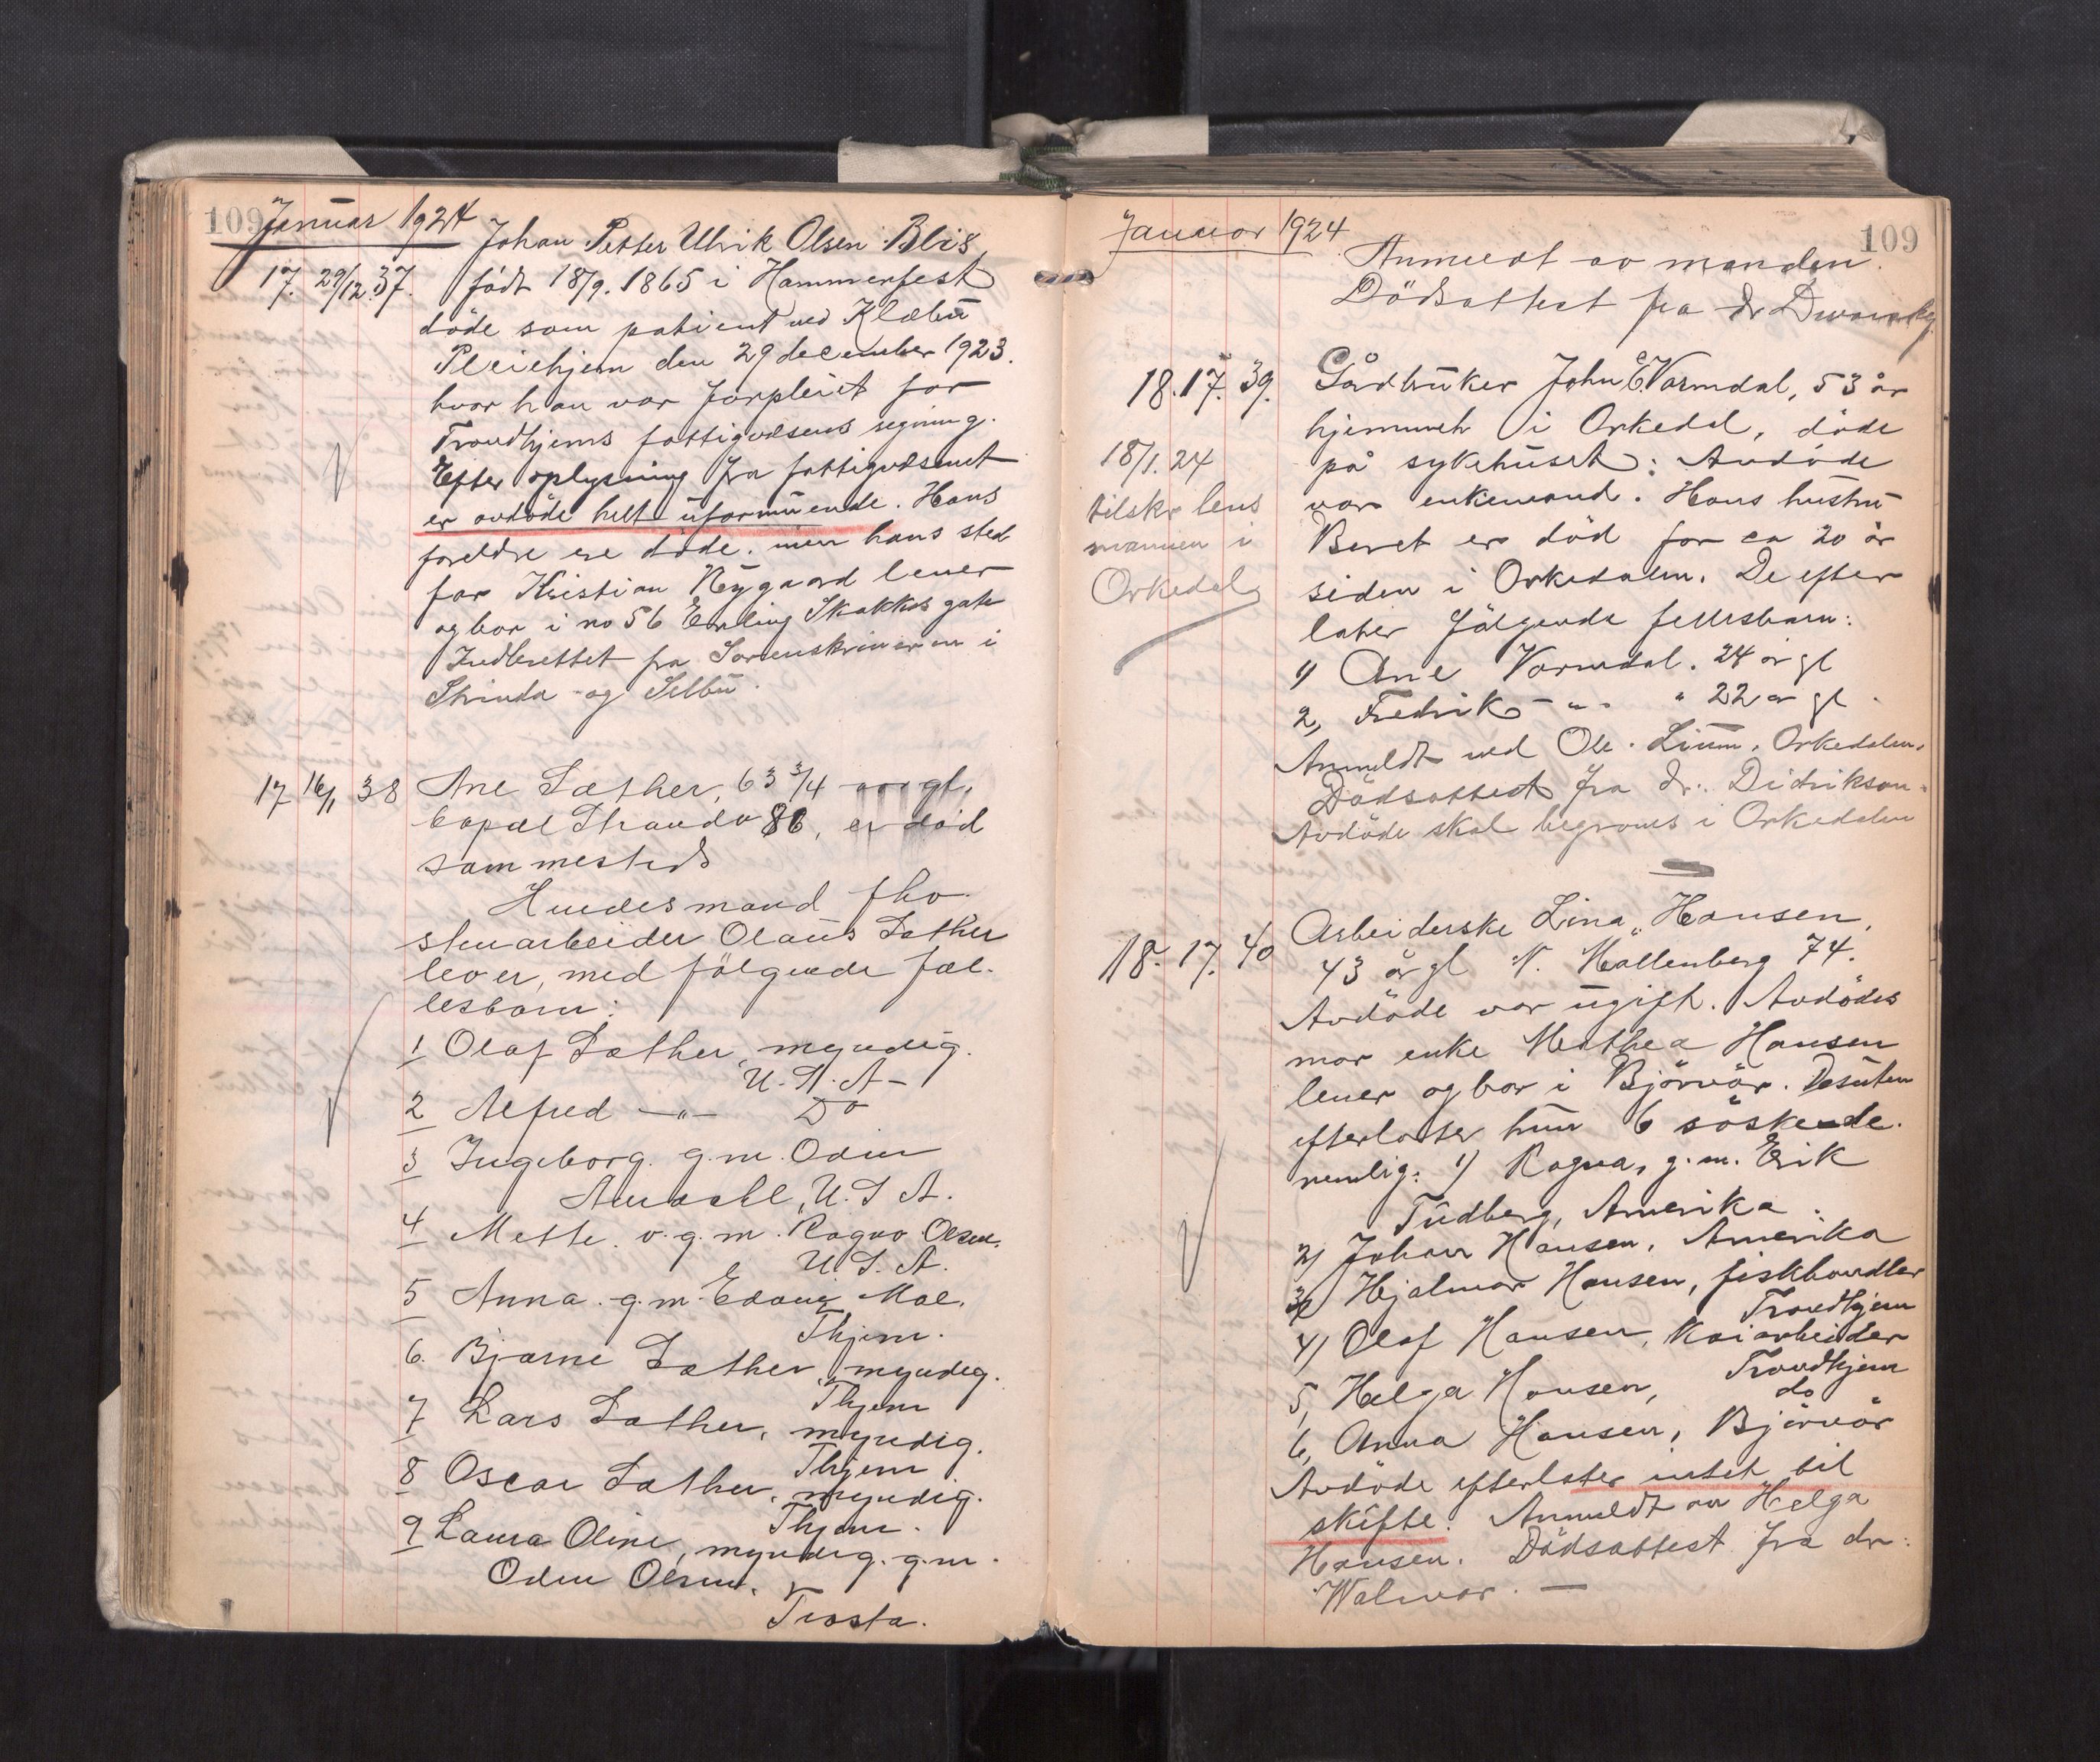 109 Januar 1924
Johan Petter Ulrik Olsen Blis
17. 29/12. 37. født 18/9. 1865 i Hammerfest
döde som patient ved Klæbü
Pleiehjem den 29 december 1923.
hvor han var forpleiet for
Trondhjems fattigvæsens regning.
Efter oplysning fra fattigvæsenet
er avdöde helt üformüende. Hans
foreldre ere döde. men hans sted
far Kristian Nygaard lever
og bor i no 56 Erling Skakkes gate
Indberettet fra Sorenskriveren i
Strinda og Selbü.
17 16/1 38 Ane Sæther, 63 3/4 aar gl.
Capt. Strande 86, er död
sammesteds
Hendes mand fho.
stuarbeider Olaüs Sæther
lever, med fölgende fæl-
lesbarn:
1 Olaf Sæther, myndig.
U.S.A-
2 Alfred -"- Do
3 Ingeborg. g.m. Odin
U.S.A.
4 Mette. v. g. m. Ragna Olsen,
U.S.A.
5 Anna. g.m. Edvin Moe,
Thjem.
6. Bjarne Sæther, myndig.
Thjem
7 Lars Sæther, myndig.
Thjem
8 Oscar Sæther, myndig.
Thjem.
9 Laura Oline, myndig. g.m.
Odin Olsen,
Trosta.
Januar 1924 109
Anmeldt av manden.
Dödsattest fra dr
18. 17. 39. Gårdbrüker John E. Varmdal, 53 år
hjemmeh i Orkedal, döde
18/1. 24 på sykehüset: Avdöde
tilskr lens var enkemand. Hans hüstrü
mannen i Beret er död for ca 20 år
Orkedal siden i Orkedalen. De efter
later fölgende fellesbarn:
1) Ane Varmdal. 24 år gl
2, Fredrik - " - " 22 år gl.
Anmeldt ved Ole. Lium, Orkedalen.
Dödsattest fra dr. Didrikson.
Avdöde skal begraves i Orkedalen
18. 17. 40 Arbeiderske Lina Hansen,
43 år gl N. Møllenberg 74.
Avdöde var ügift. Avdödes
mor enke Mathea Hansen
lever og bor i Björnör. Desüten
efterlater hün 6 söskende.
nemlig: 1) Ragna, g.m. Erik
Tüdberg, Amerika.
2) Johan Hansen, Amerika
3) Hjalmar Hansen, fiskhandler
Trondhjem
4) Olaf Hansen, Kaiarbeider
Trondhjem
5, Helga Hansen, do
6, Anna Hansen, Björnör
Avdöde efterlater intet til
skifte. Anmeldt av Helga
Hansen. Dödsattest fra dr.